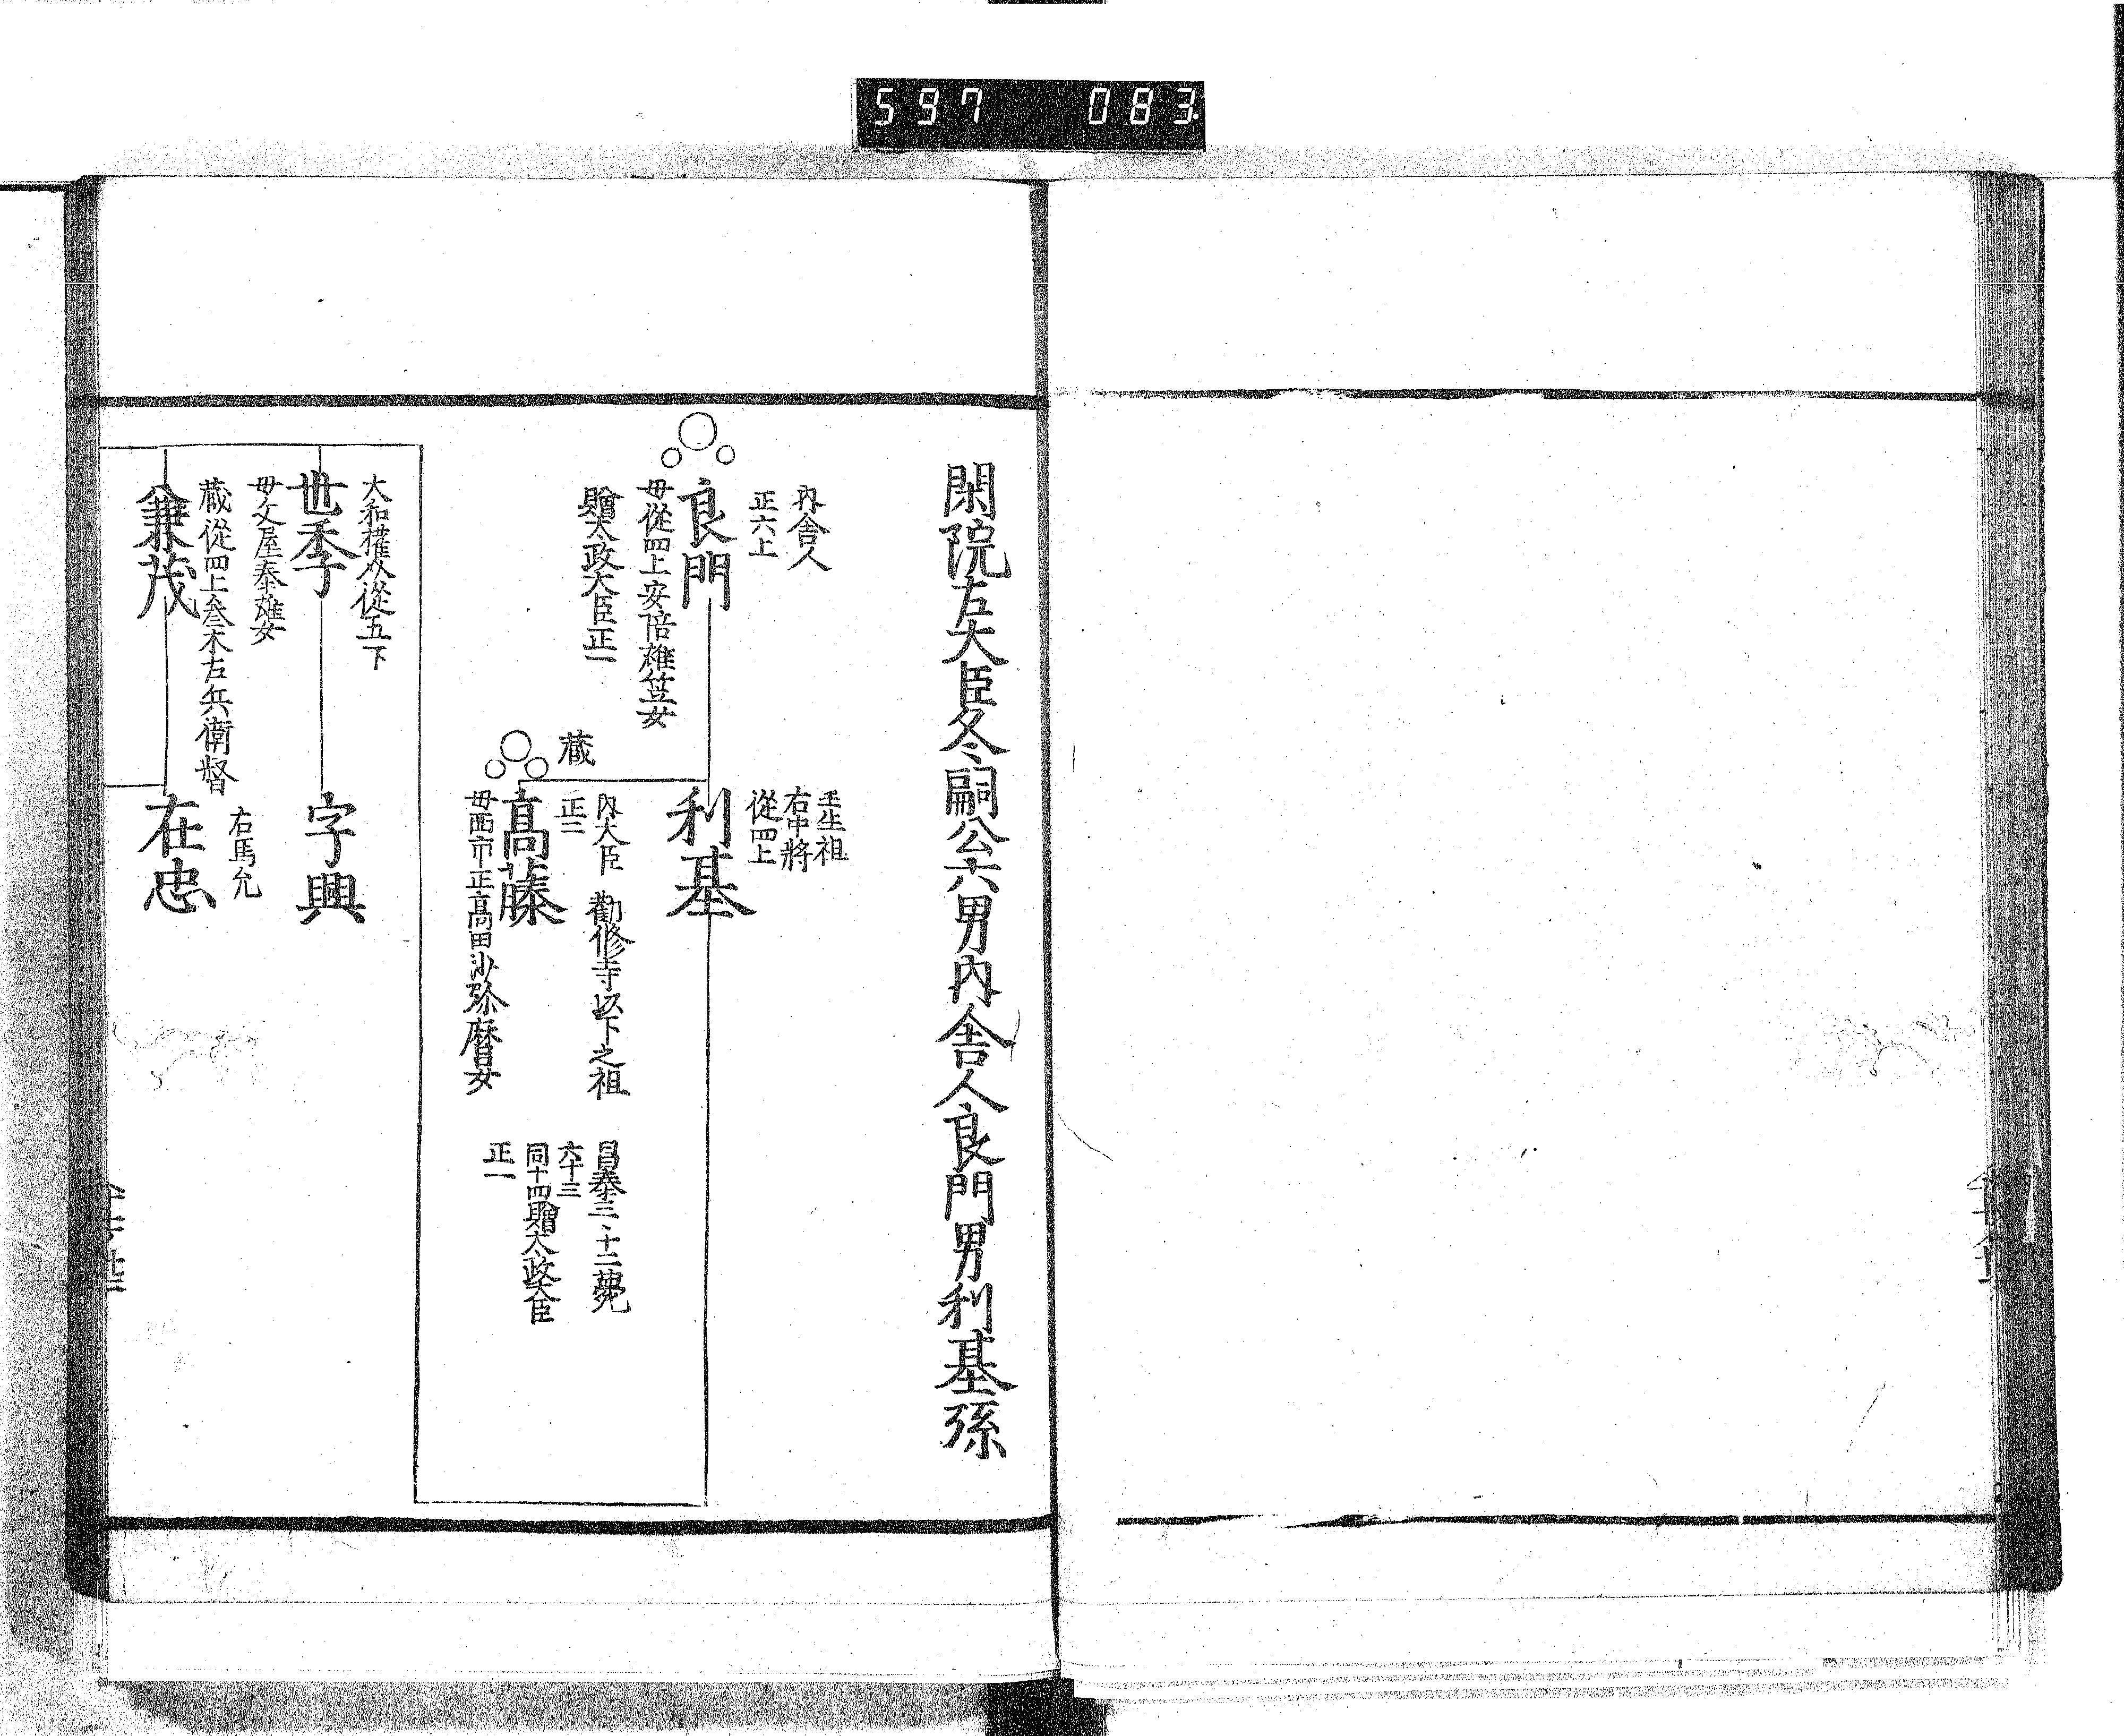 597 083
閑院左大臣冬嗣公六男内舎人良門男利基孫
内舎人
正六上
良門
母從四上安倍雄笠女
贈太政大臣正一
壬生祖
右中將
從四上
利基
藏
内大臣 勸修寺以下之祖
正三
高藤
母西市正高田沙弥麿女
昌泰三、十二薨
六十三
同十四贈太政大臣
正一
大和權介從五下
世季
母文屋泰雄女
字興
藏從四上叅木左兵衛督
兼茂
右馬允
在忠